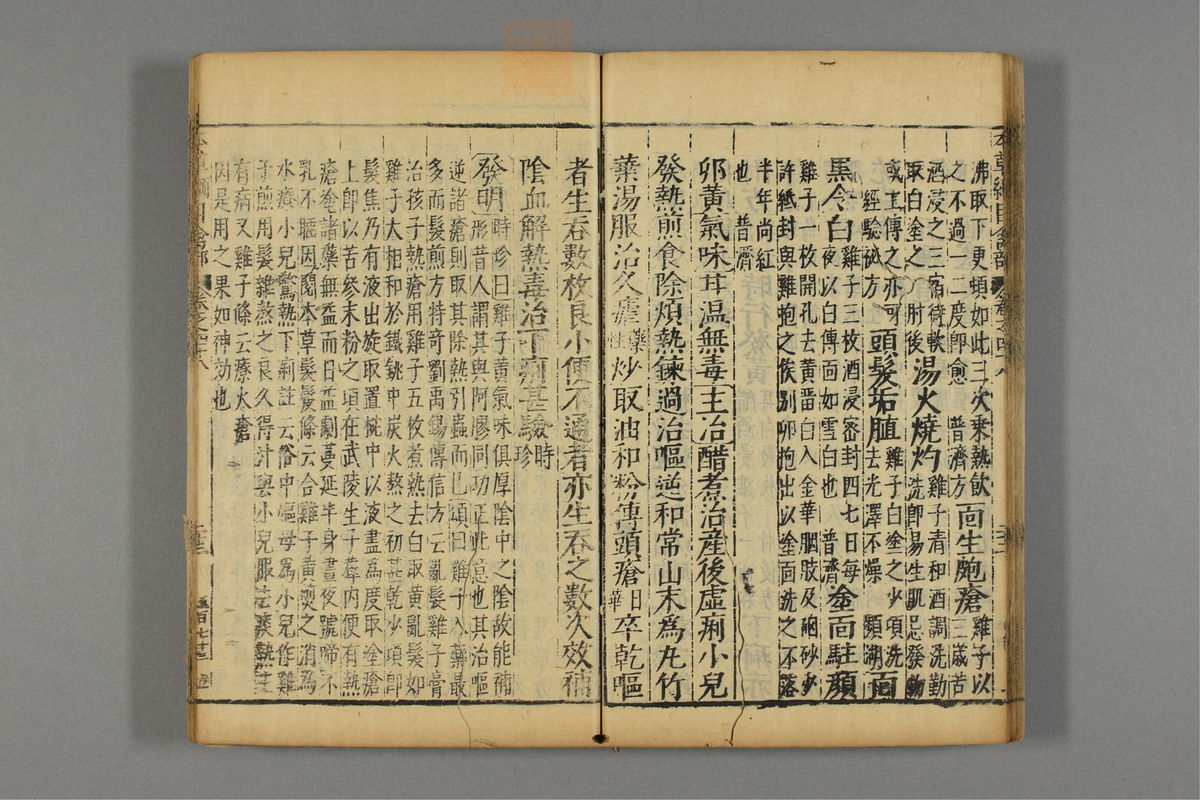 沸取下更頓如此三次乘熱飲 面生皰瘡雞子以
之不過一二度卽愈 普濟方 三歲苦
酒浸之三宿待軟 湯火燒灼雞子清和酒調洗勤
取白塗之 肘後 洗卽昜生肌忌發物
或生傳之亦可 頭髮垢䐈雞子白塗之少頃洗
經驗祕方 去光澤不燥 瀕湖 面
黑令白雞子三枚酒浸密封四七日每 塗面駐顏
夜以白傅面如雪白也 普濟
雞子一枚開孔去黄畱白入金華胭脂及硇砂少
許紙封與雞抱之俟别卵抱出以塗面洗之不落
半年尚紅
也 普濟
卵黄氣味甘温無毒主治醋煮治産後虛痢小兒
發熱煎食除煩熱鍊過治嘔逆和常山末爲丸竹
葉湯服治久瘧藥性炒取油和粉傅頭瘡日華卒乾嘔
者生吞數枚良小便不通者亦生吞之數次效補
陰血解熱毒治下痢甚驗時珍
發明時珍曰雞子黄氣味俱厚陰中之陰故能補
形昔人謂其與阿膠同功正此意也其治嘔
逆諸瘡則取其除熱引蟲而已頌曰雞子入藥最
多而髮煎方特奇劉禹錫傳信方云亂髮雞子膏
治孩子熱瘡用雞子五枚煮熟去白取黄亂髮如
雞子大相和於鐵銚中炭火熬之初甚乾少頃卽
髮焦乃有液出旋取置椀中以液盡爲度取塗瘡
上卽以苦參末粉之頃在武陵生子蓐内便有熱
瘡塗諸藥無益而日益劇蔓延半身晝夜號啼不
乳不睡因閱本草髮髲條云合雞子黄煎之消爲
水療小兒驚熱下痢註云俗中嫗母爲小兒作雞
子煎用髮雜熬之良久得汁與小兒服去痰熱主
百病又雞子條云療火瘡
因是用之果如神効也